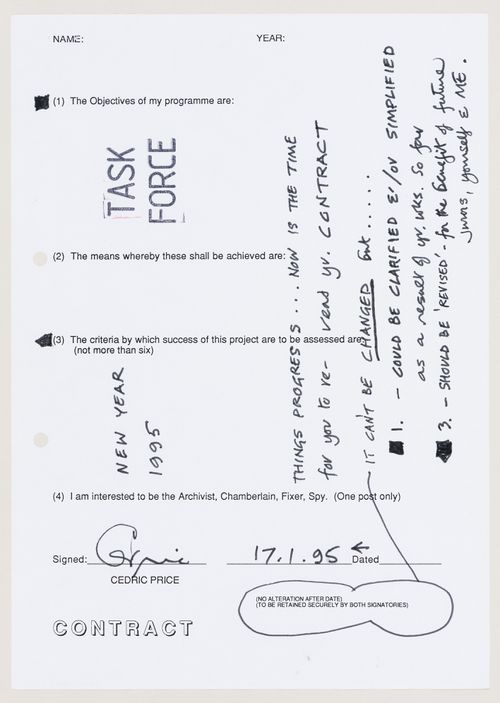 NAME: YEAR:
(1) The Objectives of my programme are:
TASK
FORCE
(2) The means whereby these shall be achieved are:
(3) The criteria by which success of this project are to be assessed are:
(not more than six)
NEW YEAR
1995
THINGS PROGRESS ... NOW IS THE TIME
for you to re-read yr. CONTRACT
— IT CAN'T BE CHANGED but......
1. — COULD BE CLARIFIED &/or SIMPLIFIED
as a result of yr. wks. So far
3. — SHOULD BE 'REVISED' - for the benefit of future
yourself & ME.
(4) I am interested to be the Archivist, Chamberlain, Fixer, Spy. (One post only)
Signed: 17.1.95 ← Dated
CEDRIC PRICE
(NO ALTERATION AFTER DATE)
(TO BE RETAINED SECURELY BY BOTH SIGNATORIES)
CONTRACT